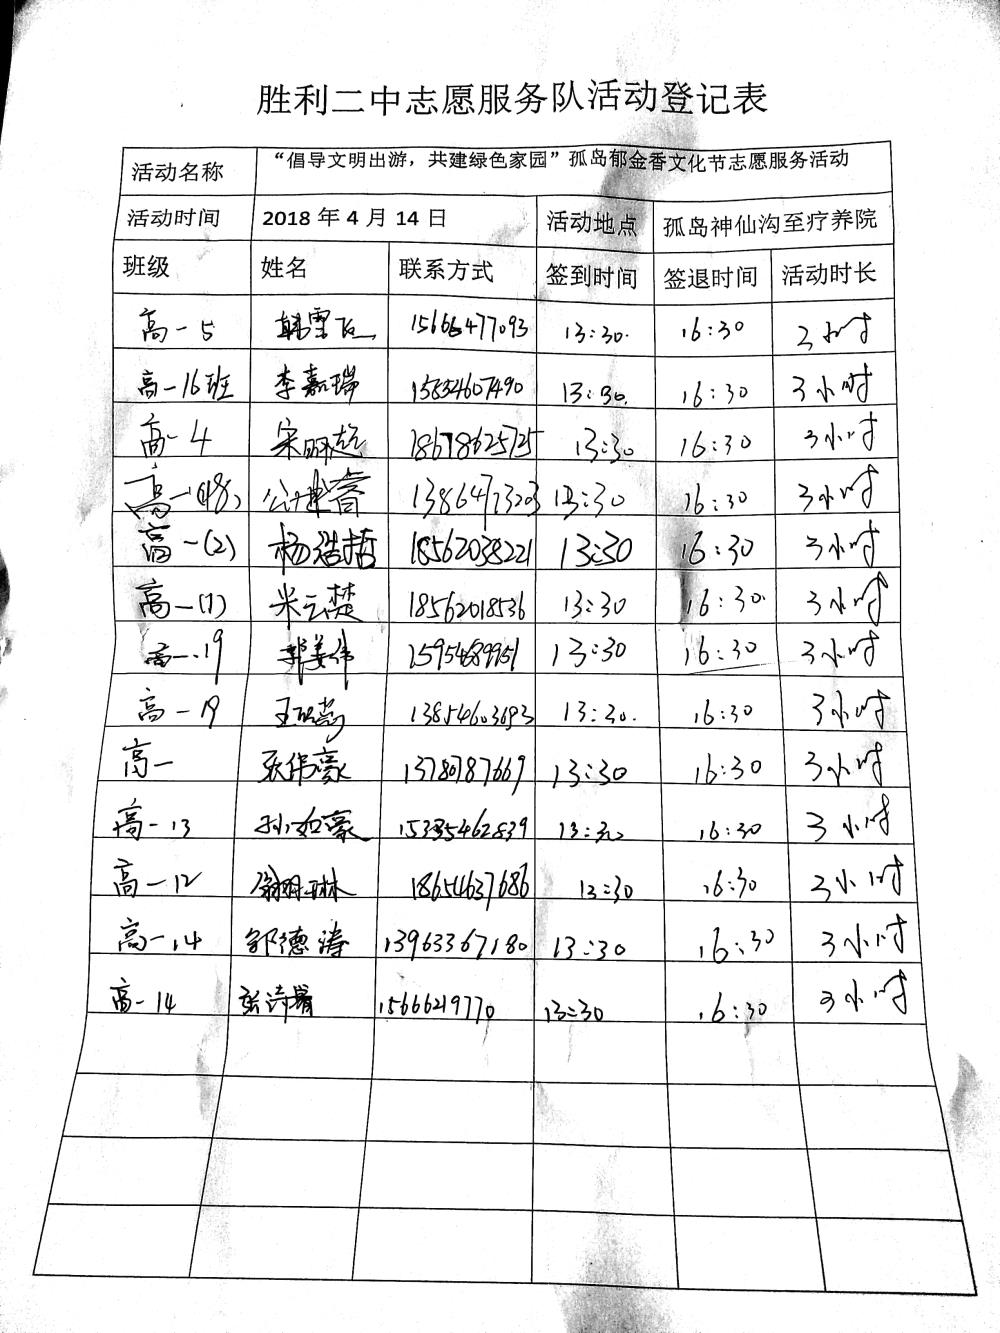 胜利二中志愿服务队活动登记表
活动名称 “倡导文明出游，共建绿色家园”孤岛郁金香文化节志愿服务活动
活动时间 2018 年 4 月 14 日 活动地点 孤岛神仙沟至疗养院
班级 姓名 联系方式 签到时间 签退时间 活动时长
高一5 韩雪飞 15666477093 13:30. 16:30 3小时
高一16班 李嘉瑞 15834607490 13:30. 16:30 3小时
高一4 18678625725 13:30 16:30 3小时
高一(18) 13864713203 13:30 16:30 3小时
高一(2) 杨浩哲 18562038221 13:30 16:30 3小时
高一(1) 米云楚 18562018536 13:30 16:30. 3小时
高一.19 郭姜伟 15954689951 13:30 16:30 3小时
高一19 13854603693 13:30. 16:30 3小时
高一 耿伟豪 13780787669 13:30 16:30 3小时
高一13 孙如豪 15335462839 13:30 16:30 3小时
高一12 18654637686 13:30 16:30 3小时
高一.14 邹德涛 13963367180 13:30 16:30 3小时
高一14 15666219770 13:30 16:30 3小时